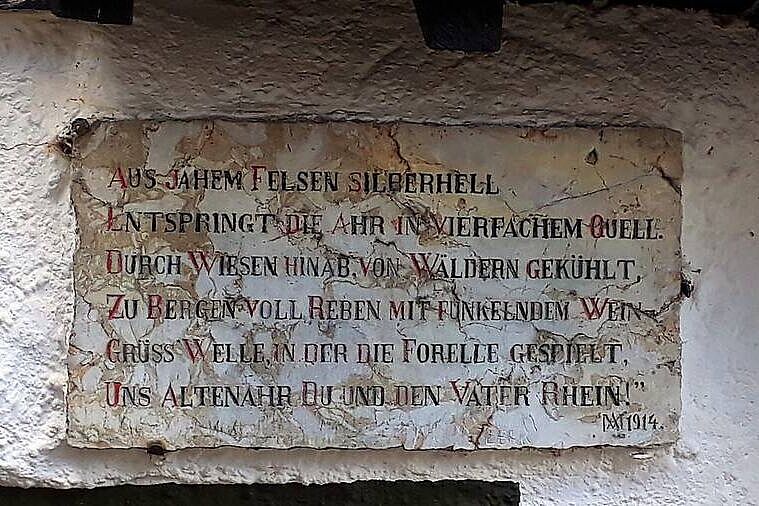 AUS JAHEM FELSEN SILBERHELL
ENTSPRINGT DIE AHR IN VIERFACHEM QUELL.
DURCH WIESEN HINAB, VON WÄLDERN GEKÜHLT,
ZU BERGEN VOLL REBEN MIT FUNKELNDEM WEIN.
GRÜSS WELLE, IN DER DIE FORELLE GESPIELT,
UNS ALTENAHR DU UND DEN VATER RHEIN!"
1914.